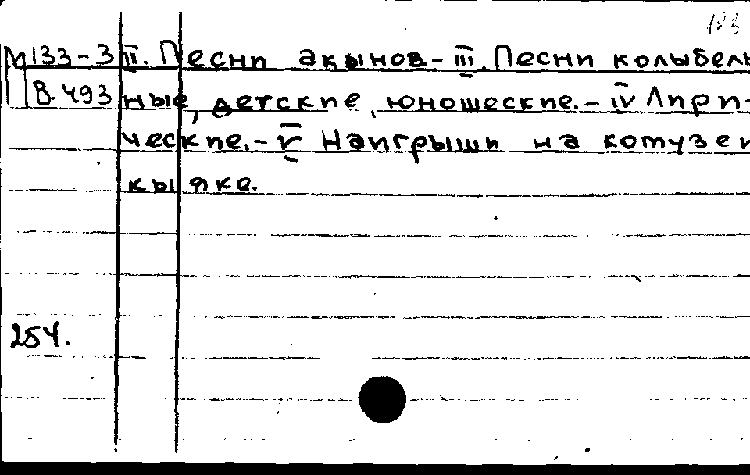 183
М 133-3 II. Песни акынов - III. Песни колыбель
В. 493 ные, детские, юношеские. - IV Лири-
ческие. - V Наигрыши на комузе и
кыяке.
254.